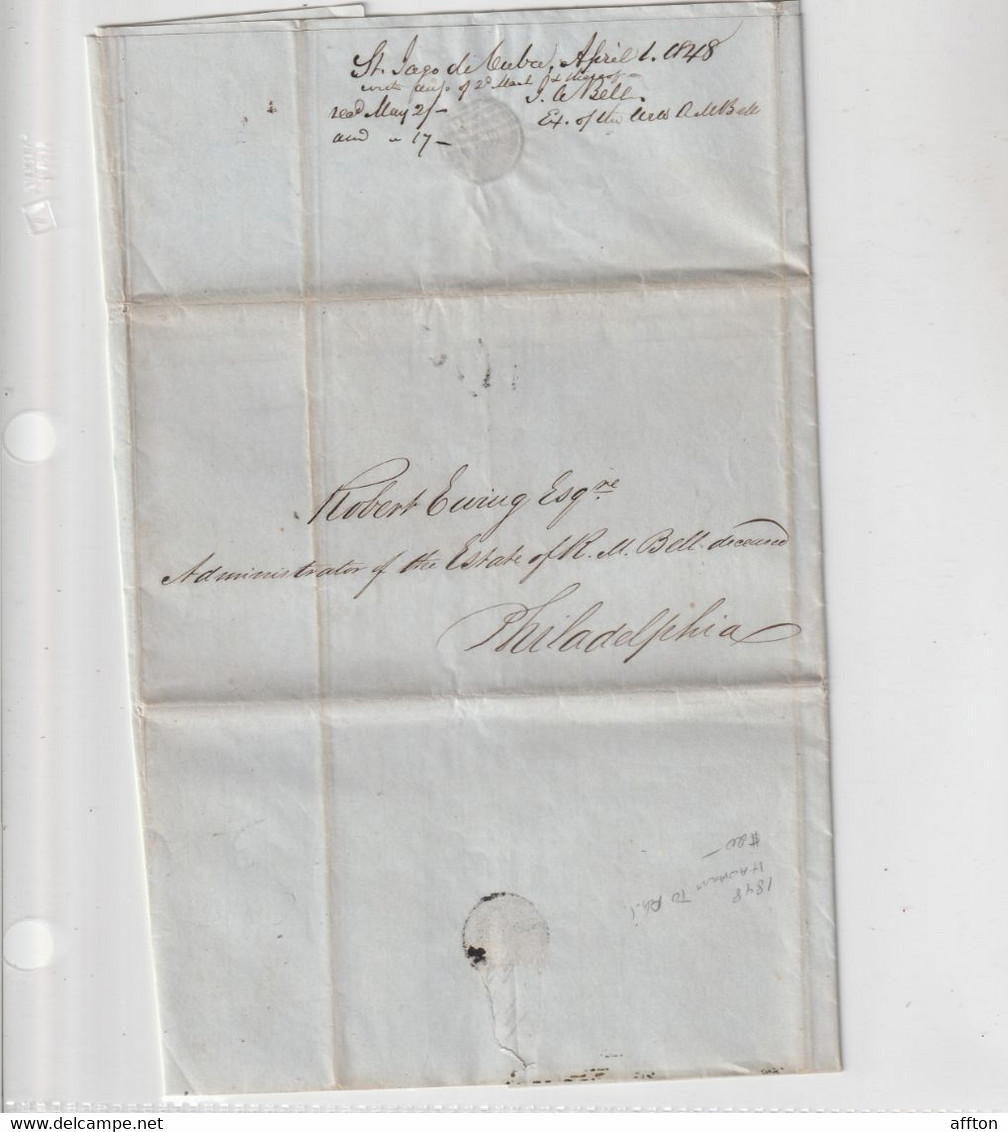 St. Jago de Cuba, April 1. 1848
with of 2d March
J. A Bell.
recd May 2/-
Ex. of the A M Bell
and " 17-
Robert Ewing Esqre.
Administrator of the Estate of R. M. Bell deceased
Philadelphia
$20-
1848
TO Phil.
affton